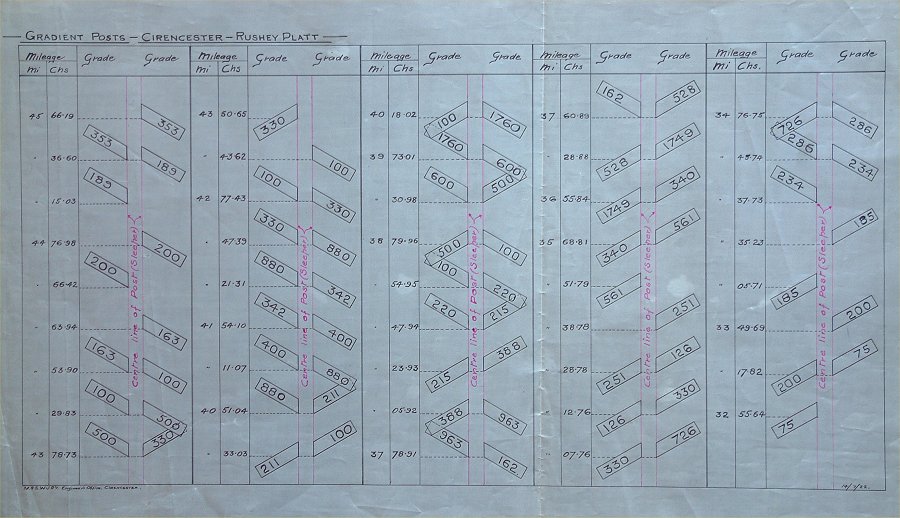 GRADIENT POSTS – CIRENCESTER – RUSHEY PLATT
Mileage Grade Grade
Mi Chs
45 66.19 353
353
" 36.60 189
189
" 15.03
44 76.98 200
200
" 66.42
" 63.94 163
163
" 53.90 100
100
" 29.83 500
500 330
43 78.73
Centre line of Post (Sleeper)
Mileage Grade Grade
Mi Chs
43 50.65 330
" 43.62 100
100
42 77.43 330
330
" 47.39 880
880
" 21.31 342
342
41 54.10 400
400
" 11.07 880
880 211
40 51.04
" 33.03 211 100
Centre line of Post (Sleeper)
Mileage Grade Grade
Mi Chs
40 18.02 100 1760
1760
39 73.01 600
600 500
" 30.98
38 79.96 500 100
100
" 54.95 220
220 215
" 47.94
" 23.93 215 388
" 05.92 388 963
963
37 78.91 162
Centre line of Post (Sleeper)
Mileage Grade Grade
Mi Chs
37 60.89 162 528
" 28.88 528 1749
36 55.84 1749 340
35 68.81 340 561
" 51.79 561
" 38.78 251
" 28.78 251 126
" 12.76 126 330
" 07.76 330 726
Centre line of Post (Sleeper)
Mileage Grade Grade
Mi Chs.
34 76.75 726 286
286
" 48.74 234
234
" 37.73
" 35.23 185
" 05.71 185
33 49.69 200
" 17.82 200 75
32 55.64 75
Centre line of Post (Sleeper)
Engineers Office, Cirencester.